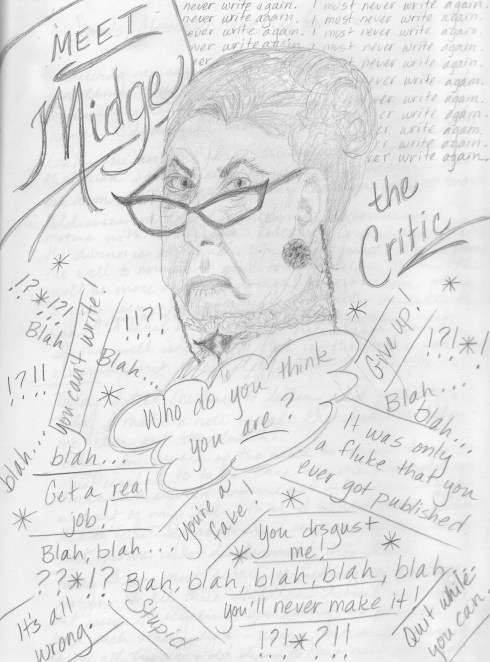 never write again. I must never write again.
never write again. I must never write again.
never write again. I must never write again.
ver write again. I must never write again.
never write again.
ever write again.
ver write again.
ver write again.
ver write again.
ver write again.
ver write again.
MEET
Midge
the
Critic
!?*!?!
Blah
!?!!
you can't write!
!!?!
Blah...
Who do you think
you are?
Give up!
!?!*!
Blah...
blah...
blah...
blah...
Get a real
job!
Blah, blah...
??*!?
You're a
fake!
It was only
a fluke that you
ever got published
You disgust
me!
Blah, blah, blah, blah, blah...
you'll never make it!
!?!*?!!
It's all
wrong.
Stupid
Quit while
you can.